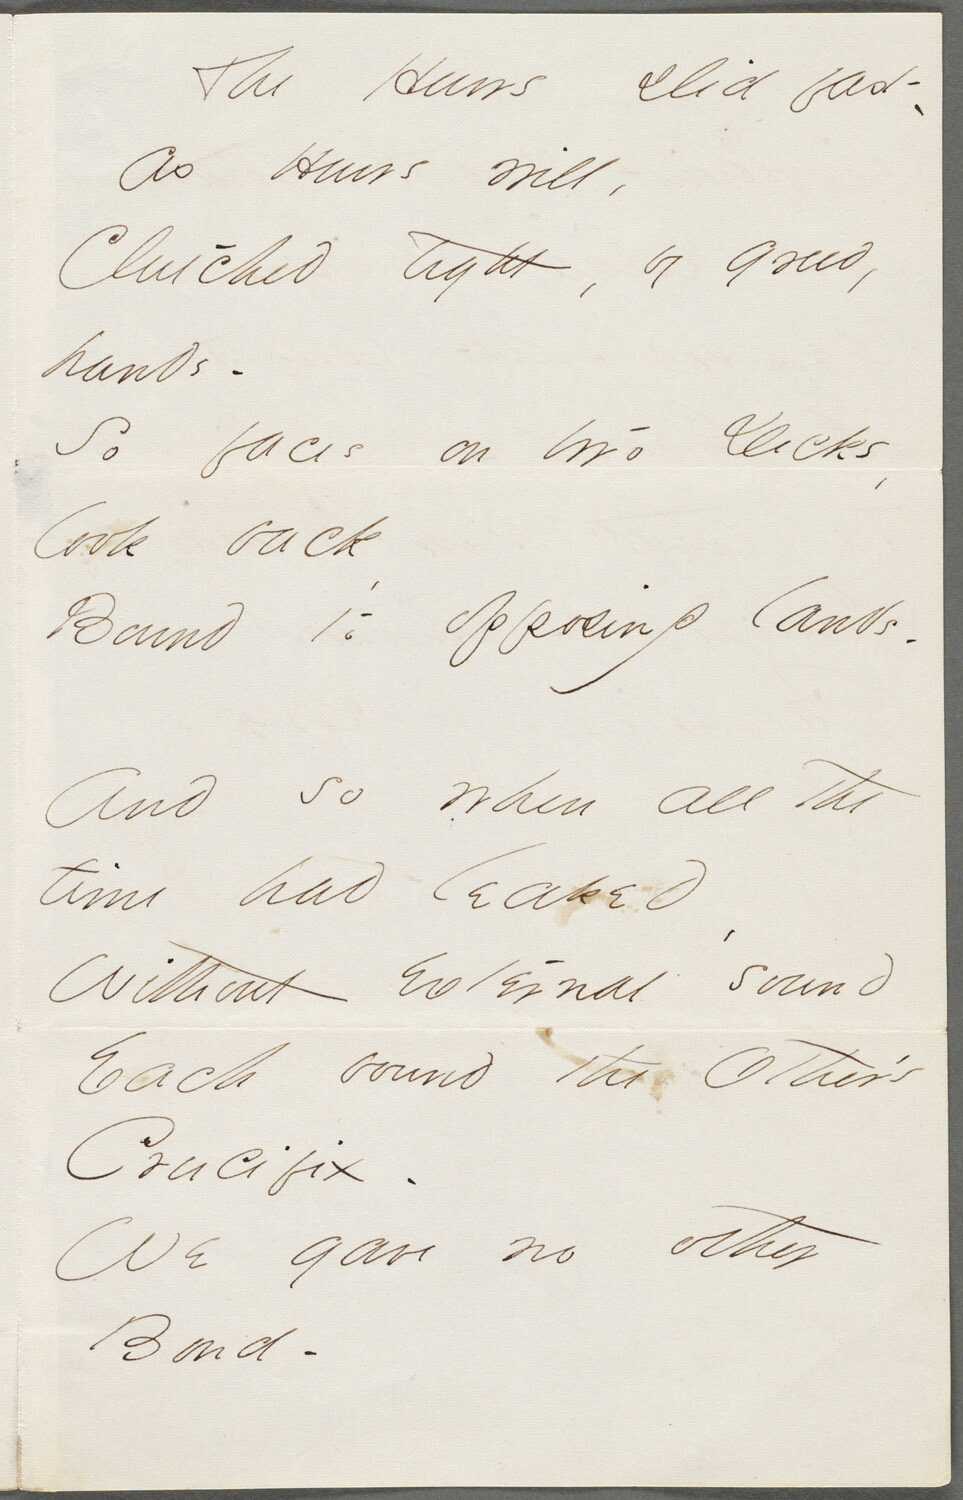 The Hours slid fast -
as Hours will,
Clutched tight, by greedy
hands -
So faces on two Decks,
look back,
Bound to opposing lands -
And so when all the
time had leaked,
Without external sound
Each bound the Other's
Crucifix -
We gave no other
Bond -